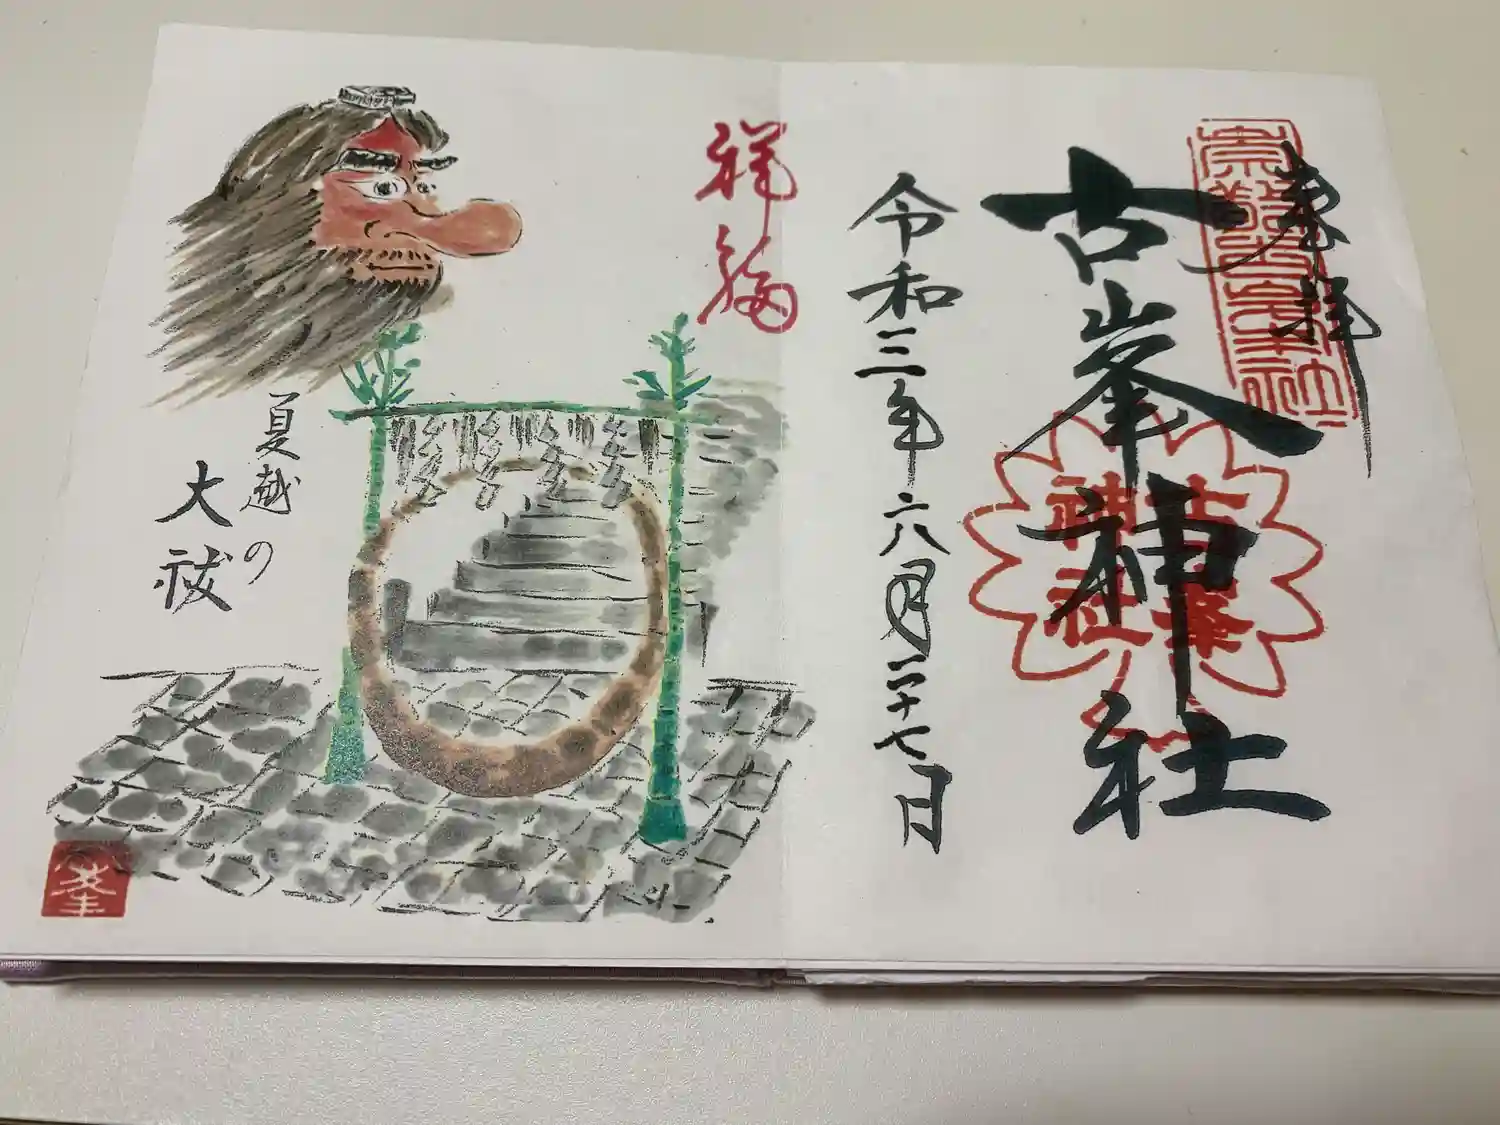 奉拝
崇敬古峯神社
古峯神社
古峯
神社
令和三年六月二十七日
祥福
夏越の
大祓
峯